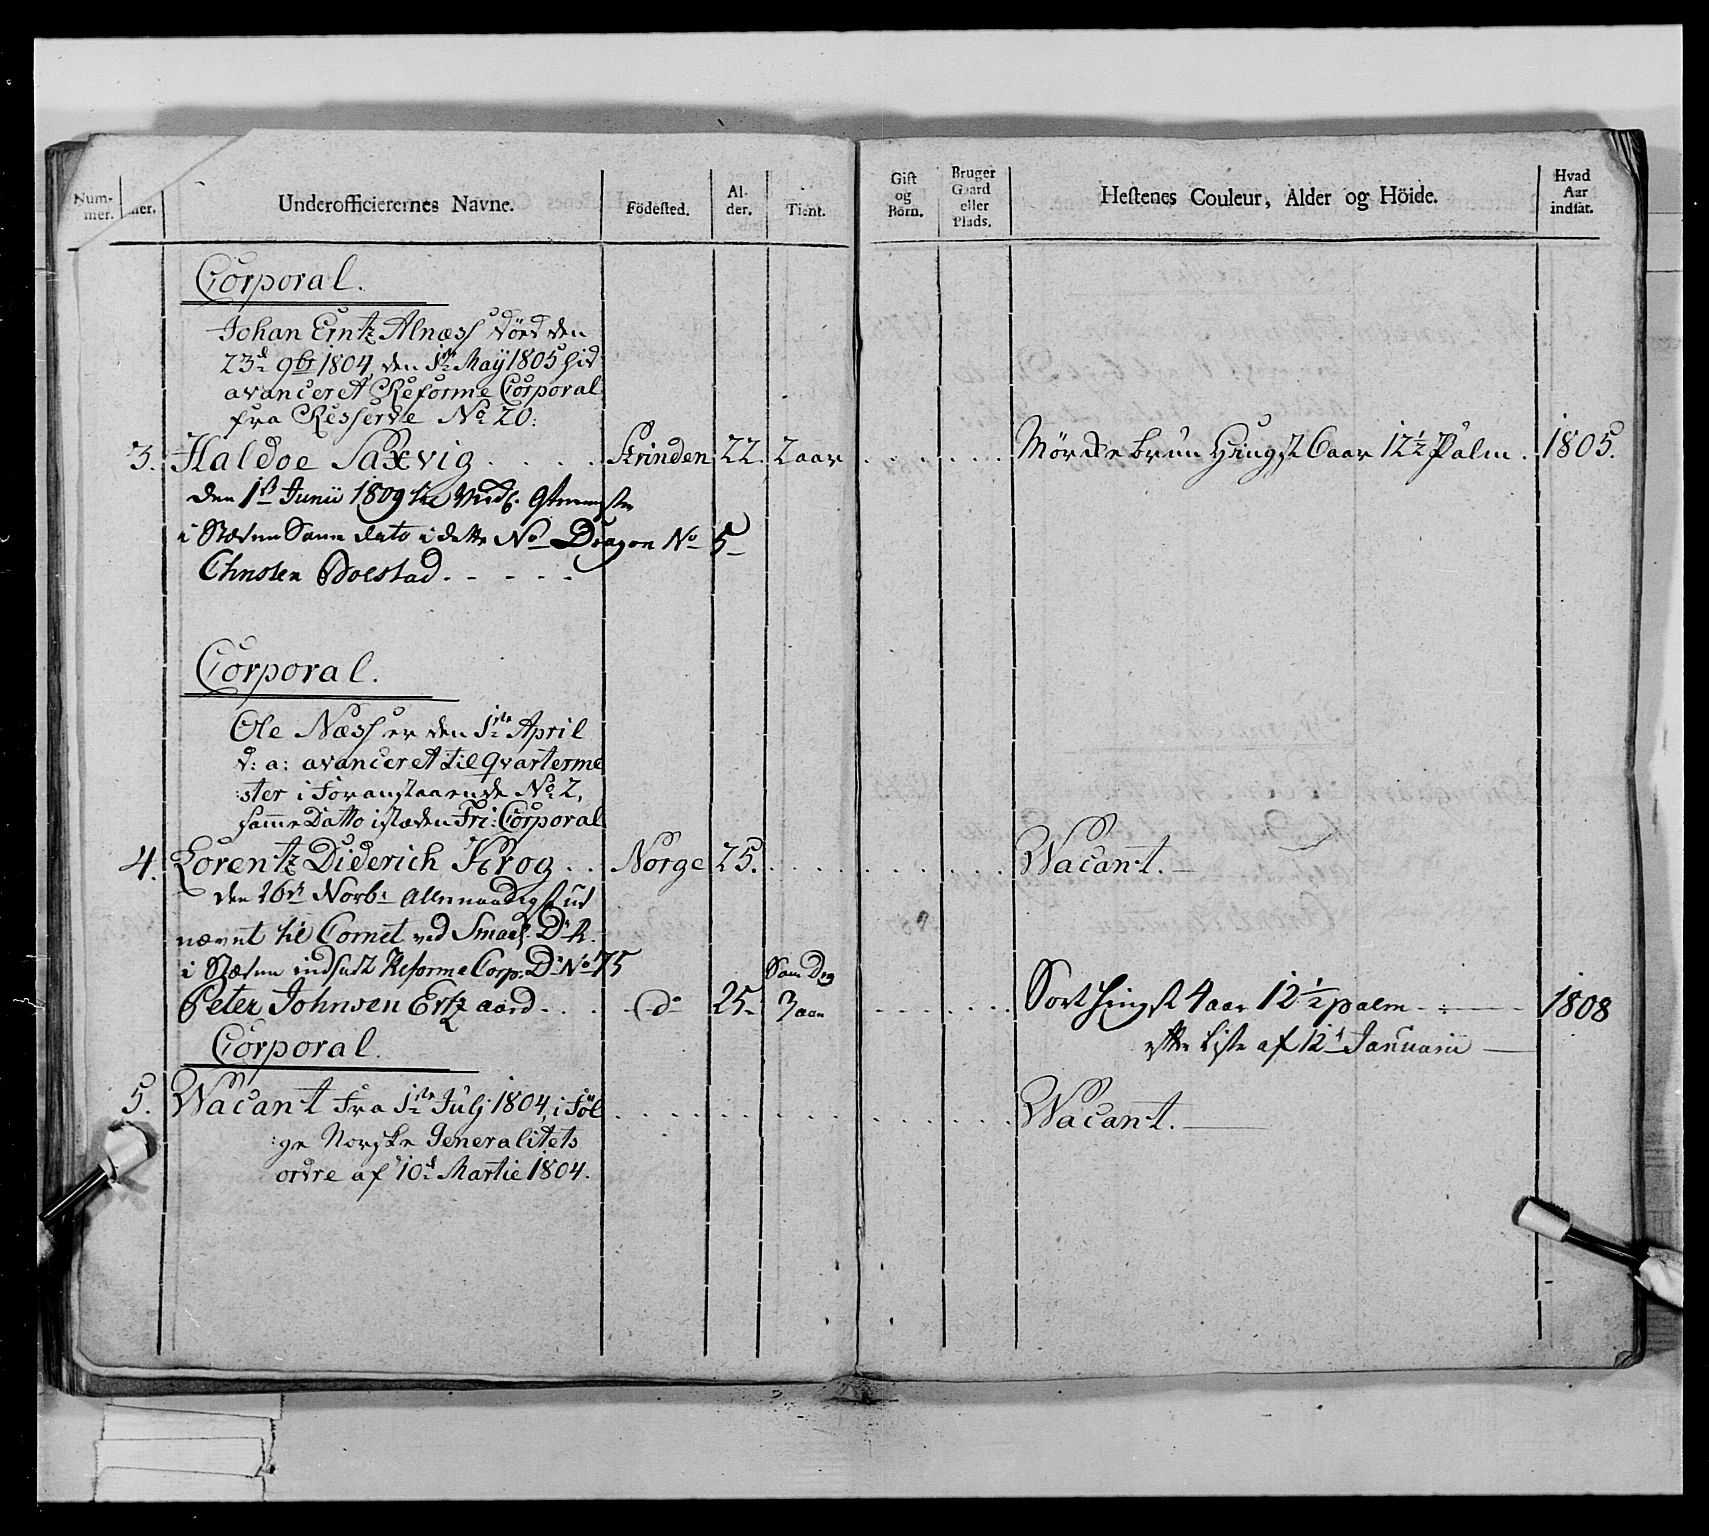 Num-
mer.
mer.
Underofficierernes Navne.
Födested.
Al-
der.
Tient.
Gift
og
Børn.
Bruger
Gaard
eller
Plads.
Hestenes Couleur, Alder og Höide.
Hvad
Aar
indsat.
Corporal.
Johan Erntz Alnæss død den
23d 9br 1804, den 1ste May 1805 hid
avanceret Reforme Corporal
fra Resserve No 20:
3. Haldoe Saxvig . . . . Strinden 22. 2 aar . . . . . . Mörkebrun Hingst 6 aar 12½ Palm. 1805.
den 1ste Junii 1809
i Stæden Samme dato i dette No Dragon No 5
Christen Boestad. - - - - -
Corporal.
Ole Næss er den 1ste April
d: a: avanceret til Qvarterme
:ster i Foranstaaende No 2,
samme Datto istæden Fri: Corporal
4. Lorentz Diderich Krog . . Norge 25. . . . . . . . . Vacant.
den 26de Novb: allernaadigst ud
nævnt til Cornet ved D: R.
i Stæden indsadt Reforme Corp: D: No 75
Peter Johnsen Ertzaard . . . do 25. 3 aar . . . . . . Sort Hingst 4 aar 12½ palm 1808
efter Liste af 12t Januarii
Corporal.
5. Vacant Fra 1ste Julj 1804, i Föl . . . . . . . . . . Vacant.
:ge Norske Generalitets
ordre af 10d Martie 1804.